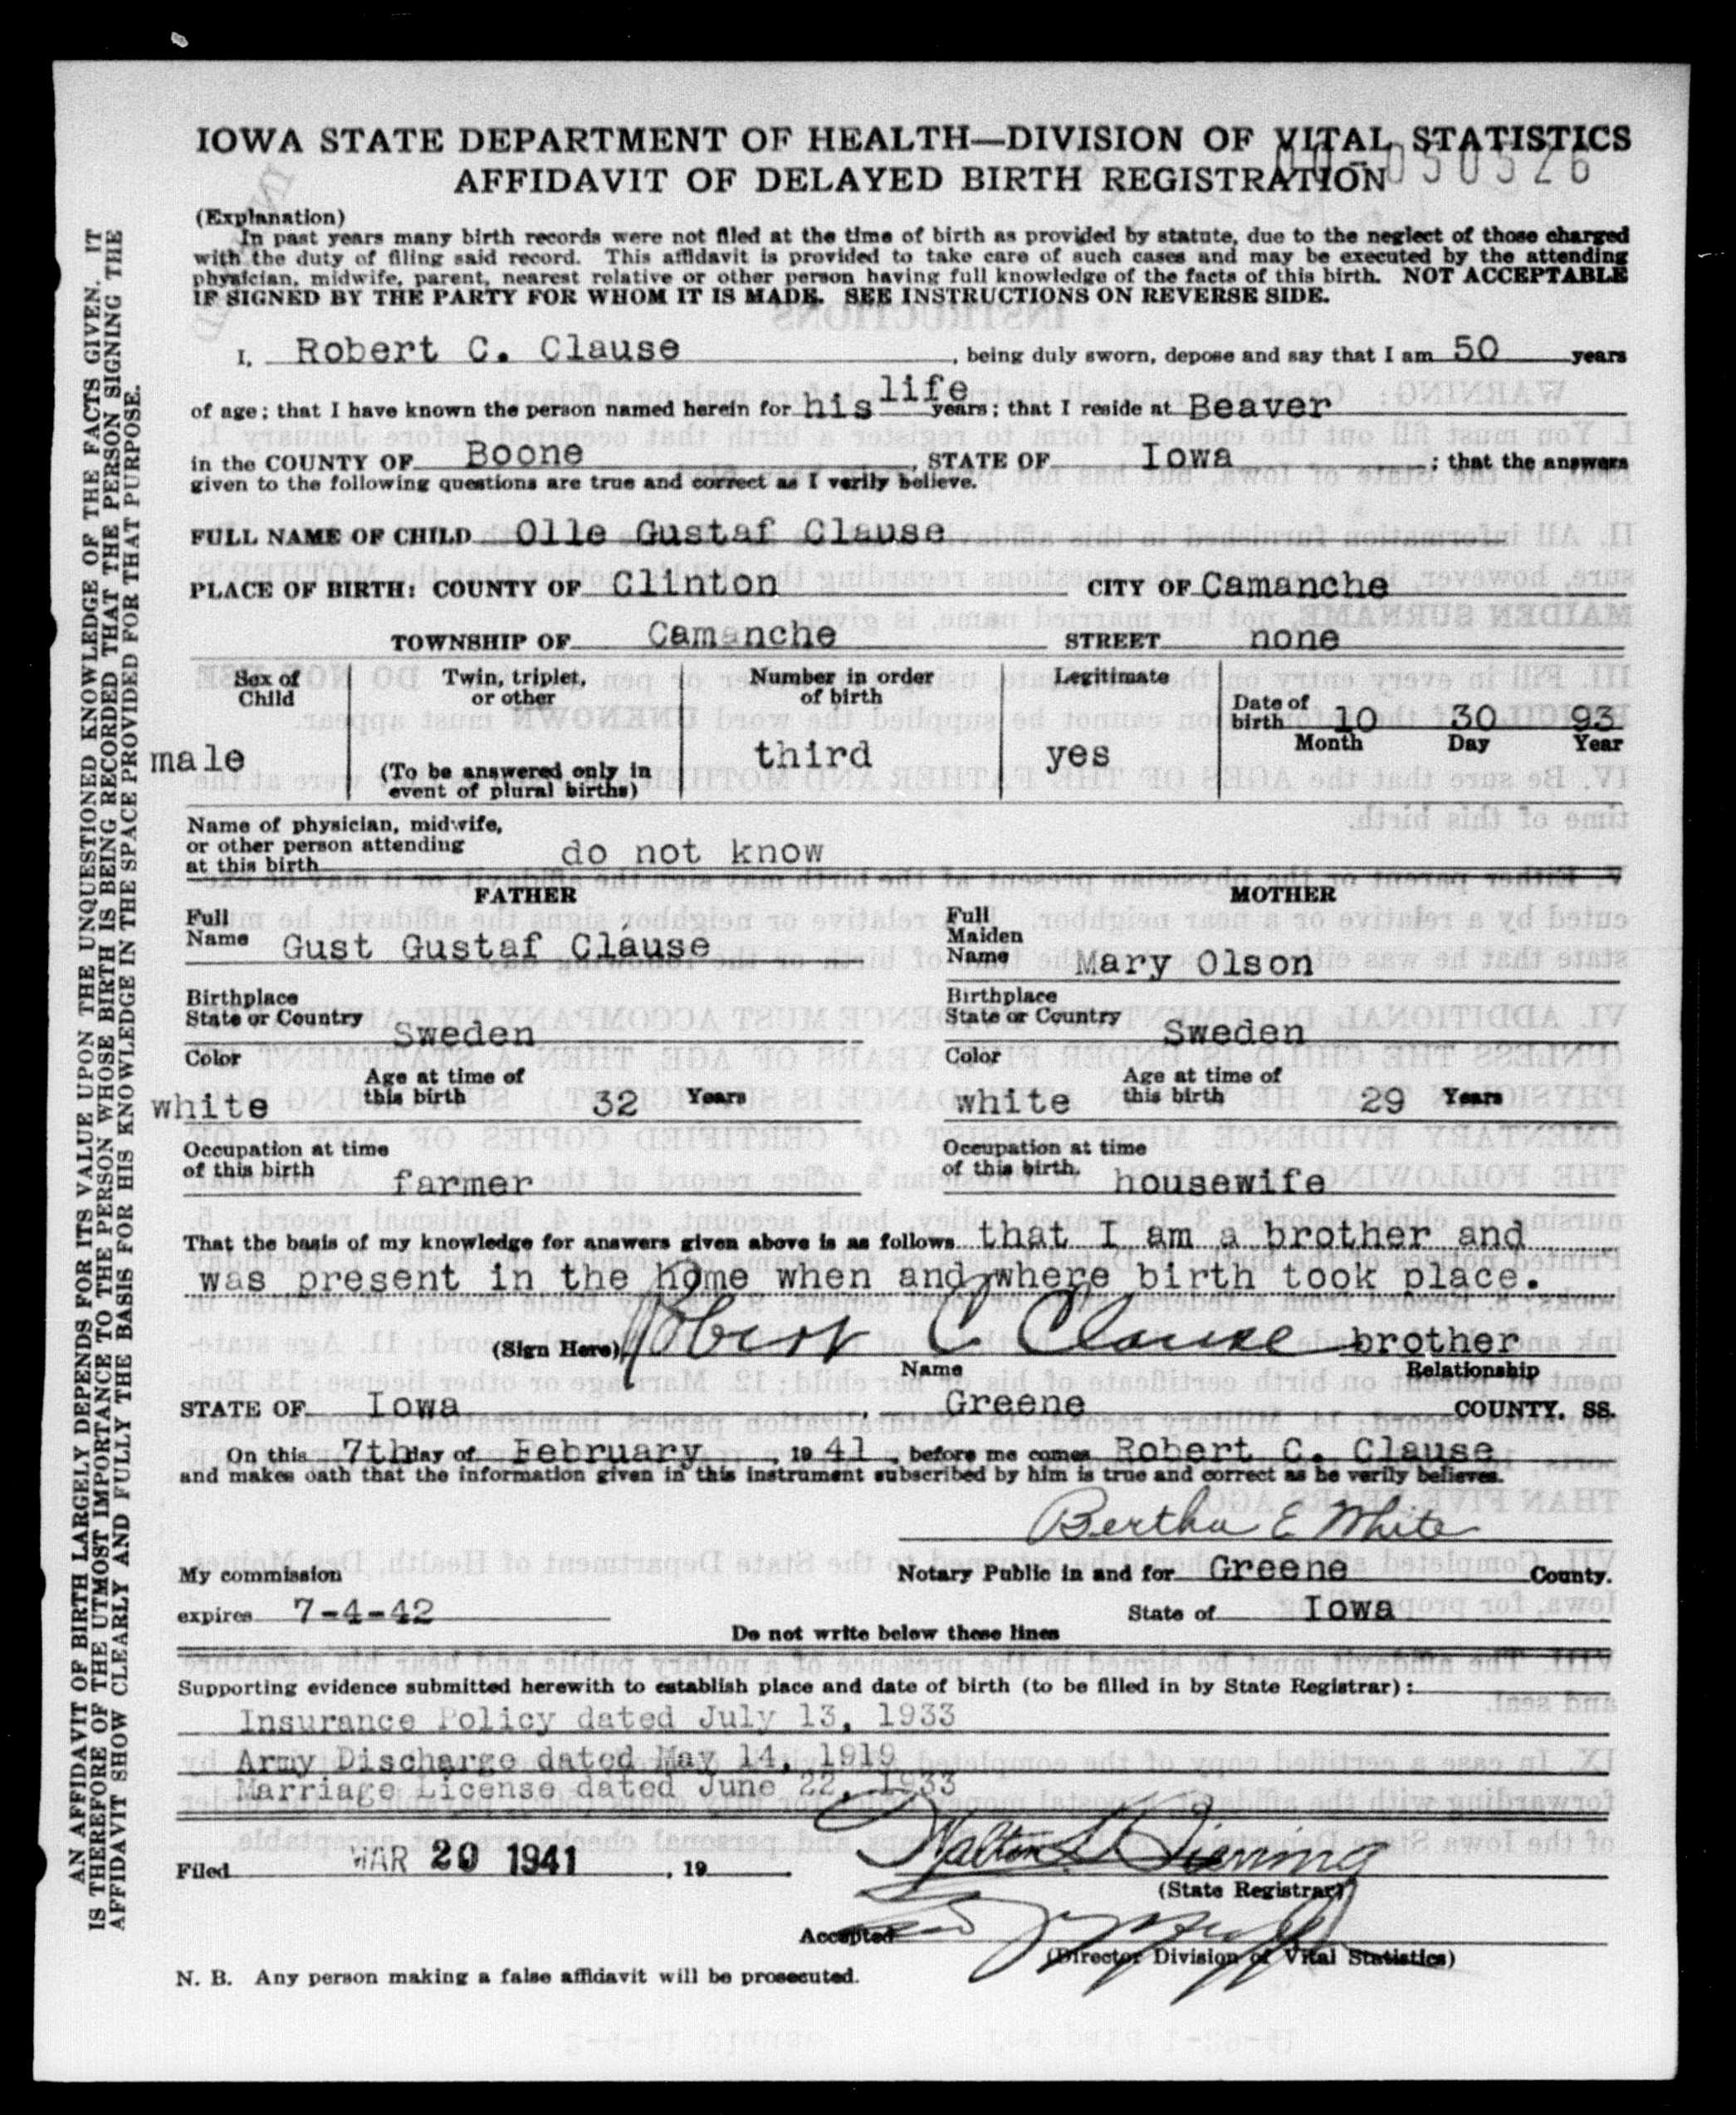 IOWA STATE DEPARTMENT OF HEALTH—DIVISION OF VITAL STATISTICS
AFFIDAVIT OF DELAYED BIRTH REGISTRATION
(Explanation)
In past years many birth records were not filed at the time of birth as provided by statute, due to the neglect of those charged
with the duty of filing said record. This affidavit is provided to take care of such cases and may be executed by the attending
physician, midwife, parent, nearest relative or other person having full knowledge of the facts of this birth. NOT ACCEPTABLE
IF SIGNED BY THE PARTY FOR WHOM IT IS MADE. SEE INSTRUCTIONS ON REVERSE SIDE.
I, Robert C. Clause, being duly sworn, depose and say that I am 50 years
of age; that I have known the person named herein for his life years; that I reside at Beaver
in the COUNTY OF Boone, STATE OF Iowa; that the answers
given to the following questions are true and correct as I verily believe.
FULL NAME OF CHILD Olle Gustaf Clause
PLACE OF BIRTH: COUNTY OF Clinton CITY OF Camanche
TOWNSHIP OF Camanche STREET none
Sex of Child male
Twin, triplet, or other
(To be answered only in event of plural births)
Number in order of birth third
Legitimate yes
Date of birth 10 30 93
Month Day Year
Name of physician, midwife,
or other person attending
at this birth do not know
FATHER
Full Name Gust Gustaf Clause
Birthplace
State or Country Sweden
Color white
Age at time of this birth 32 Years
Occupation at time
of this birth farmer
MOTHER
Full Maiden Name Mary Olson
Birthplace
State or Country Sweden
Color white
Age at time of this birth 29 Years
Occupation at time
of this birth. housewife
That the basis of my knowledge for answers given above is as follows that I am a brother and
was present in the home when and where birth took place.
(Sign Here) Robert C Clause brother
Name Relationship
STATE OF Iowa, Greene COUNTY, SS.
On this 7th day of February, 1941, before me comes Robert C. Clause
and makes oath that the information given in this instrument subscribed by him is true and correct as he verily believes.
Bertha E White
My commission Notary Public in and for Greene County.
expires 7-4-42 State of Iowa
Do not write below these lines
Supporting evidence submitted herewith to establish place and date of birth (to be filled in by State Registrar):
Insurance Policy dated July 13, 1933
Army Discharge dated May 14, 1919
Marriage License dated June 22, 1933
Filed MAR 20 1941, 19
(State Registrar)
Accepted
(Director Division of Vital Statistics)
N. B. Any person making a false affidavit will be prosecuted.
AN AFFIDAVIT OF BIRTH LARGELY DEPENDS FOR ITS VALUE UPON THE UNQUESTIONED KNOWLEDGE OF THE FACTS GIVEN. IT
IS THEREFORE OF THE UTMOST IMPORTANCE TO THE PERSON WHOSE BIRTH IS BEING RECORDED THAT THE PERSON SIGNING THE
AFFIDAVIT SHOW CLEARLY AND FULLY THE BASIS FOR HIS KNOWLEDGE IN THE SPACE PROVIDED FOR THAT PURPOSE.